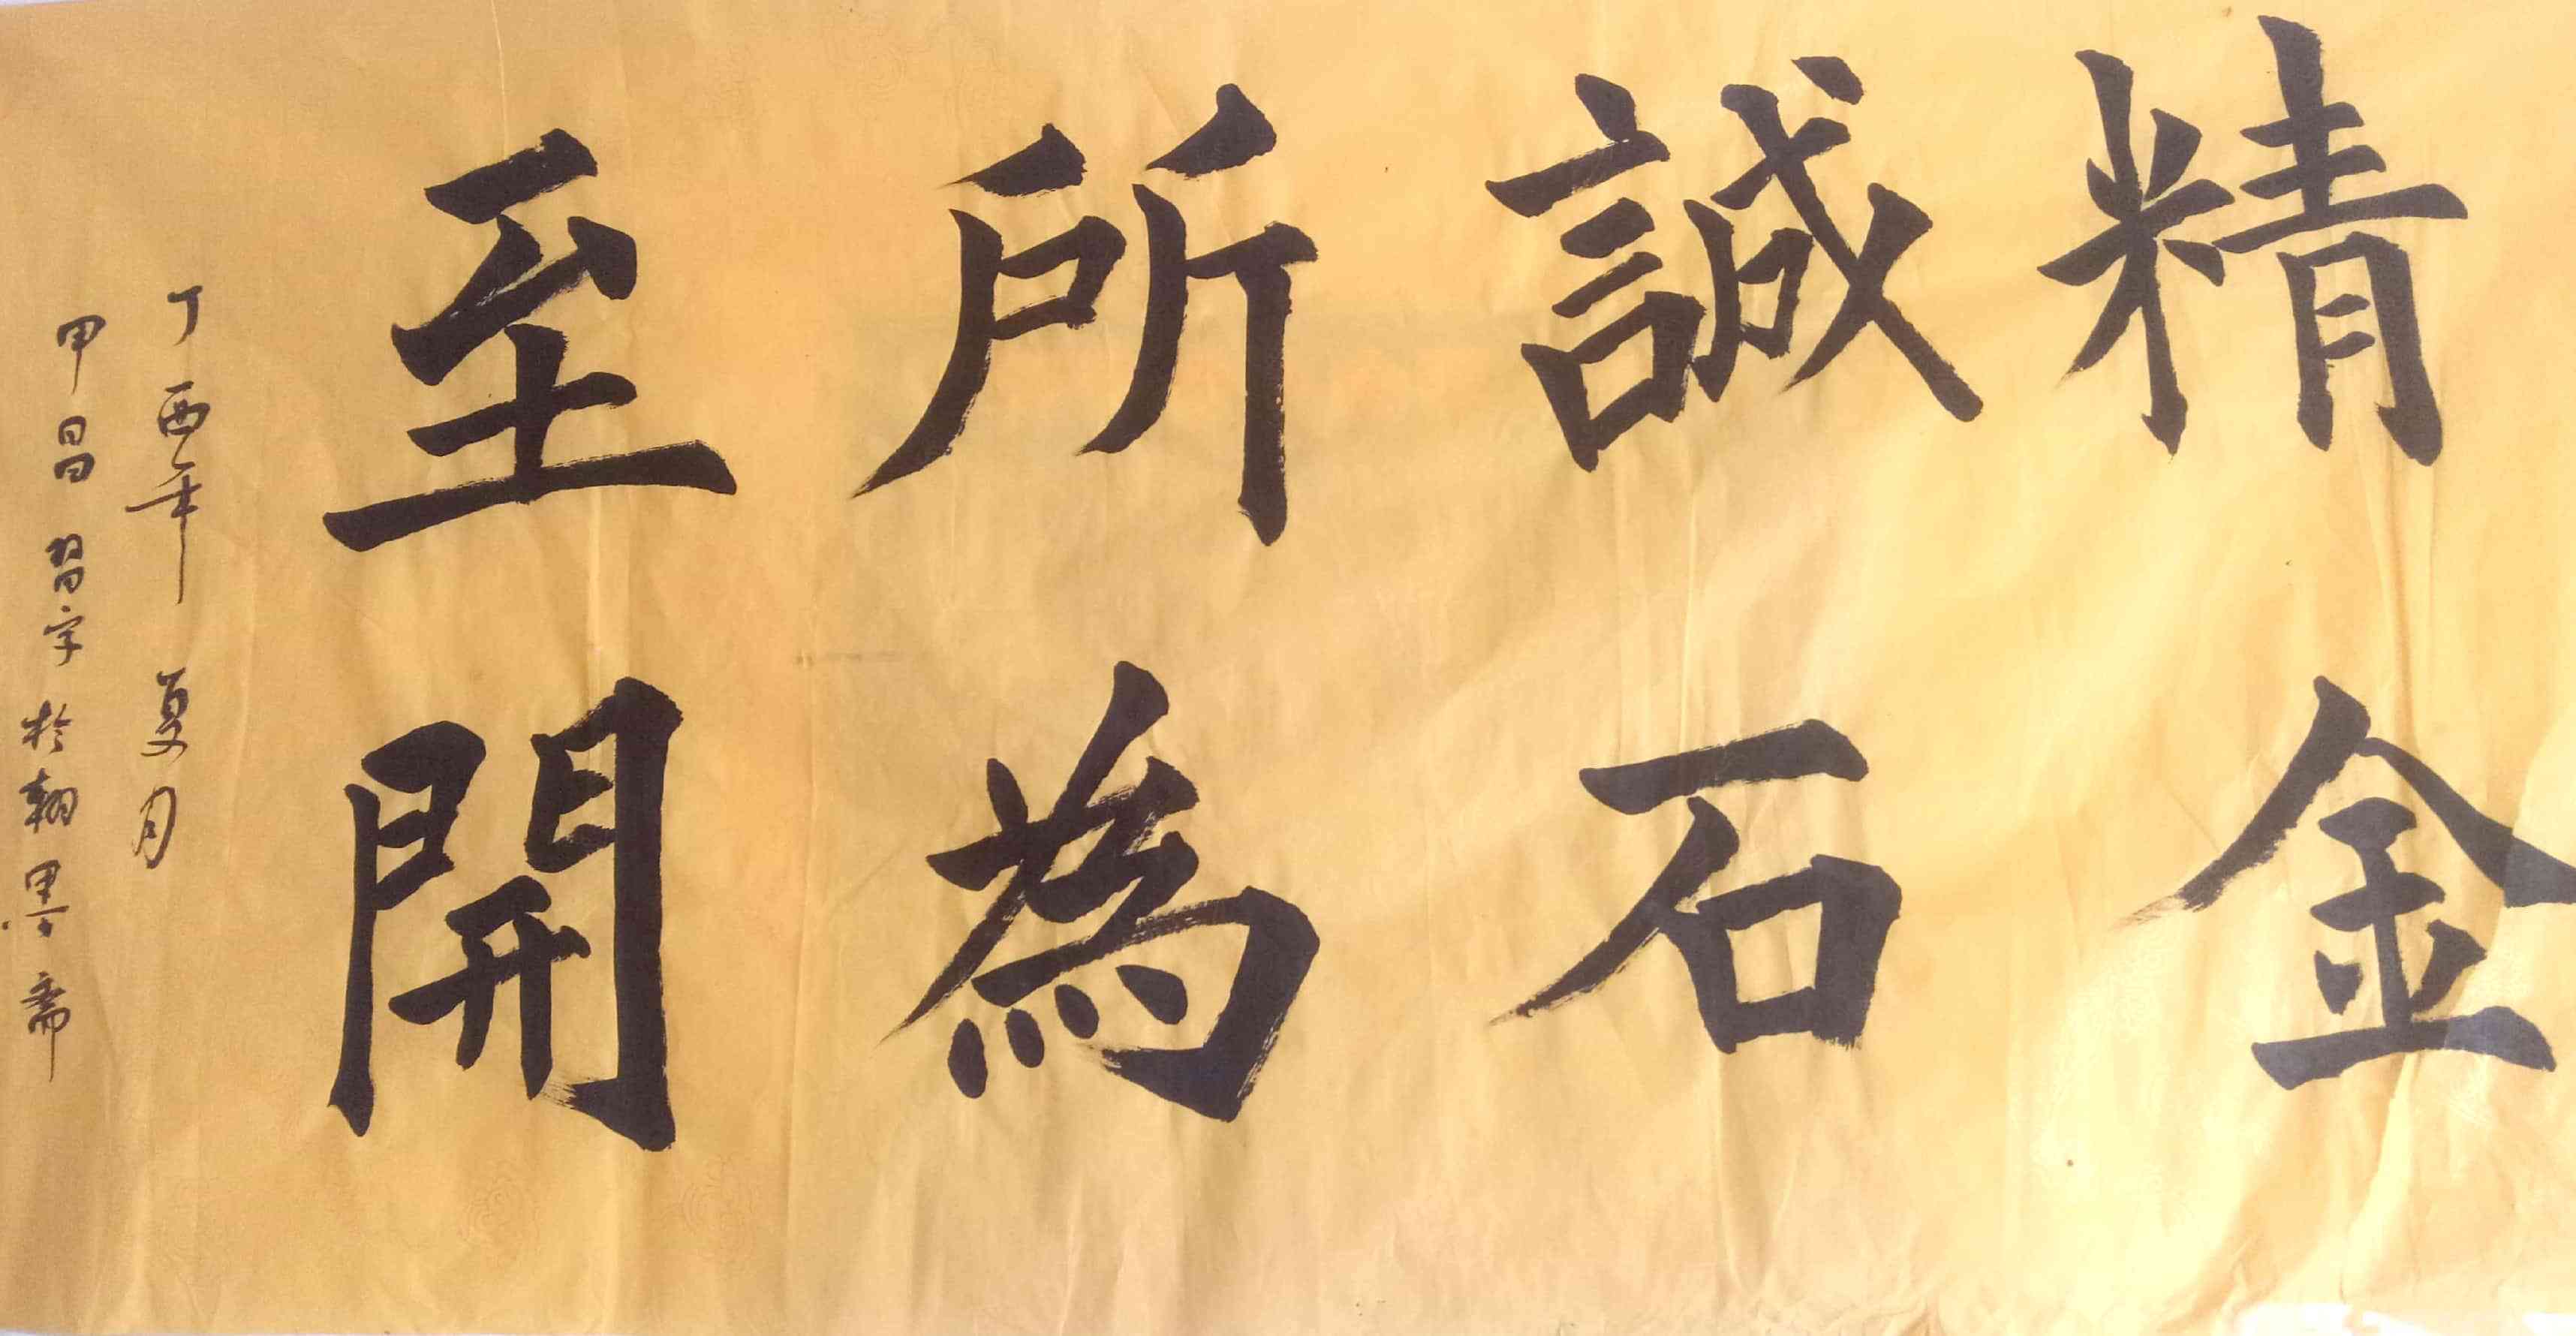 精誠所至
金石為開
丁酉年夏月
甲昌習字於翰墨齋